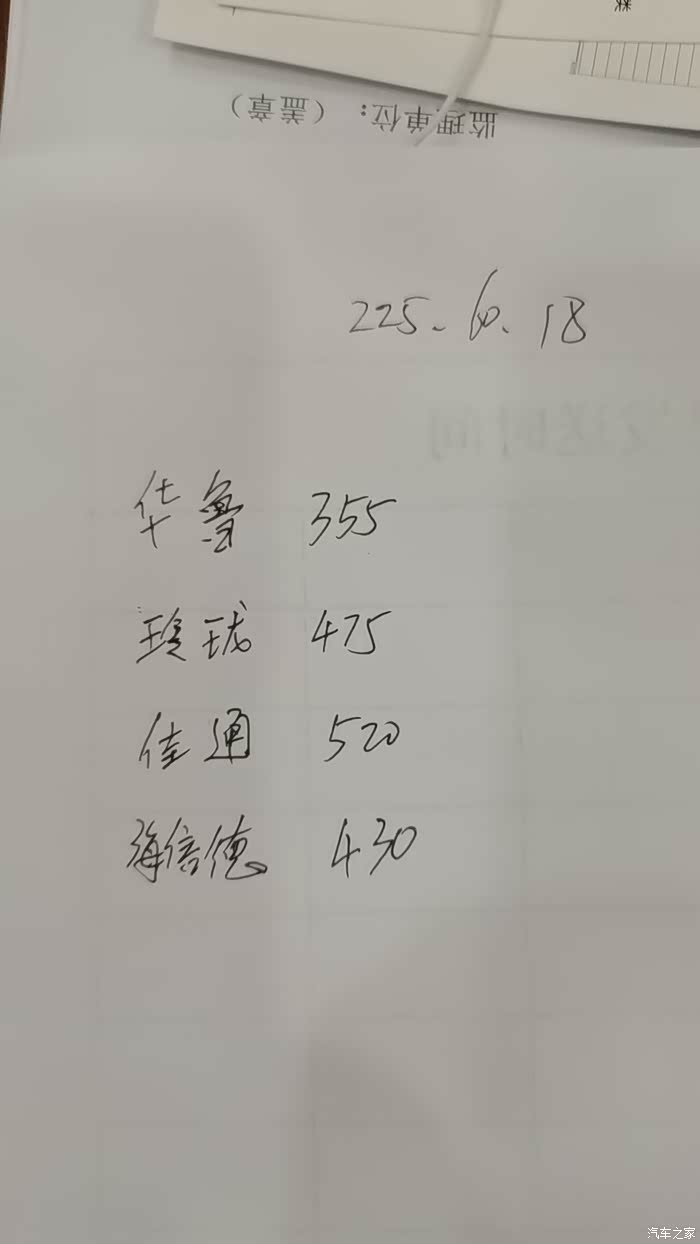 监理单位：（盖章）
225.60.18
华鲁 355
玲珑 475
佳通 520
海倍德 430
汽车之家